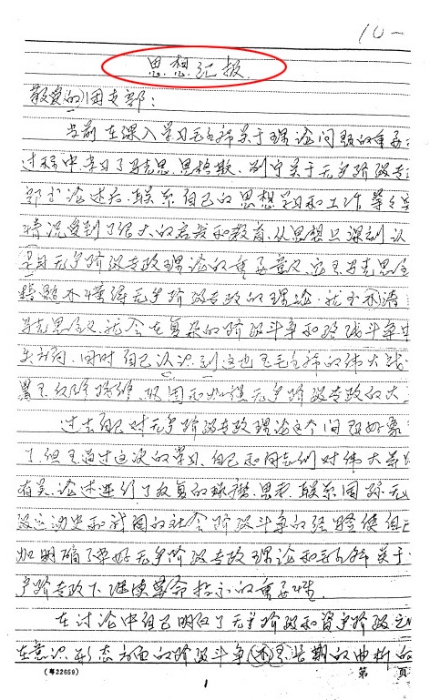 10-
思想汇报
敬爱的团支部：
当前在深入学习毛主席关于理论问题的重要
过程中,学习了马克思、恩格斯、列宁关于无产阶级专
部分论述后,联系自己的思想学习和工作等
情况受到了很大的启发和教育,从思想上深刻认
学习无产阶级专政理论的重要意义,
不懂得无产阶级专政的理论,就不清
马克思主义,就会在复杂的阶级斗争和路线斗争中
失方向,同时自己认识到这也是毛主席的伟大战
巩固和加强无产阶级专政的大
过去自己对无产阶级专政理论这个问题好象
了,但是通过这次的学习,自己和同志们对伟大
有关论述进行了认真的思考,联系国际无
级运动史和我国的社会阶级斗争的经验使自己
加明确了学好无产阶级专政理论和毛主席关于
产阶级专政下继续革命指示的重要性.
在讨论中自己明确了无产阶级和资产阶级之
在意识形态方面的阶级斗争还是长期的曲折的
(粤22659)
1
第 页